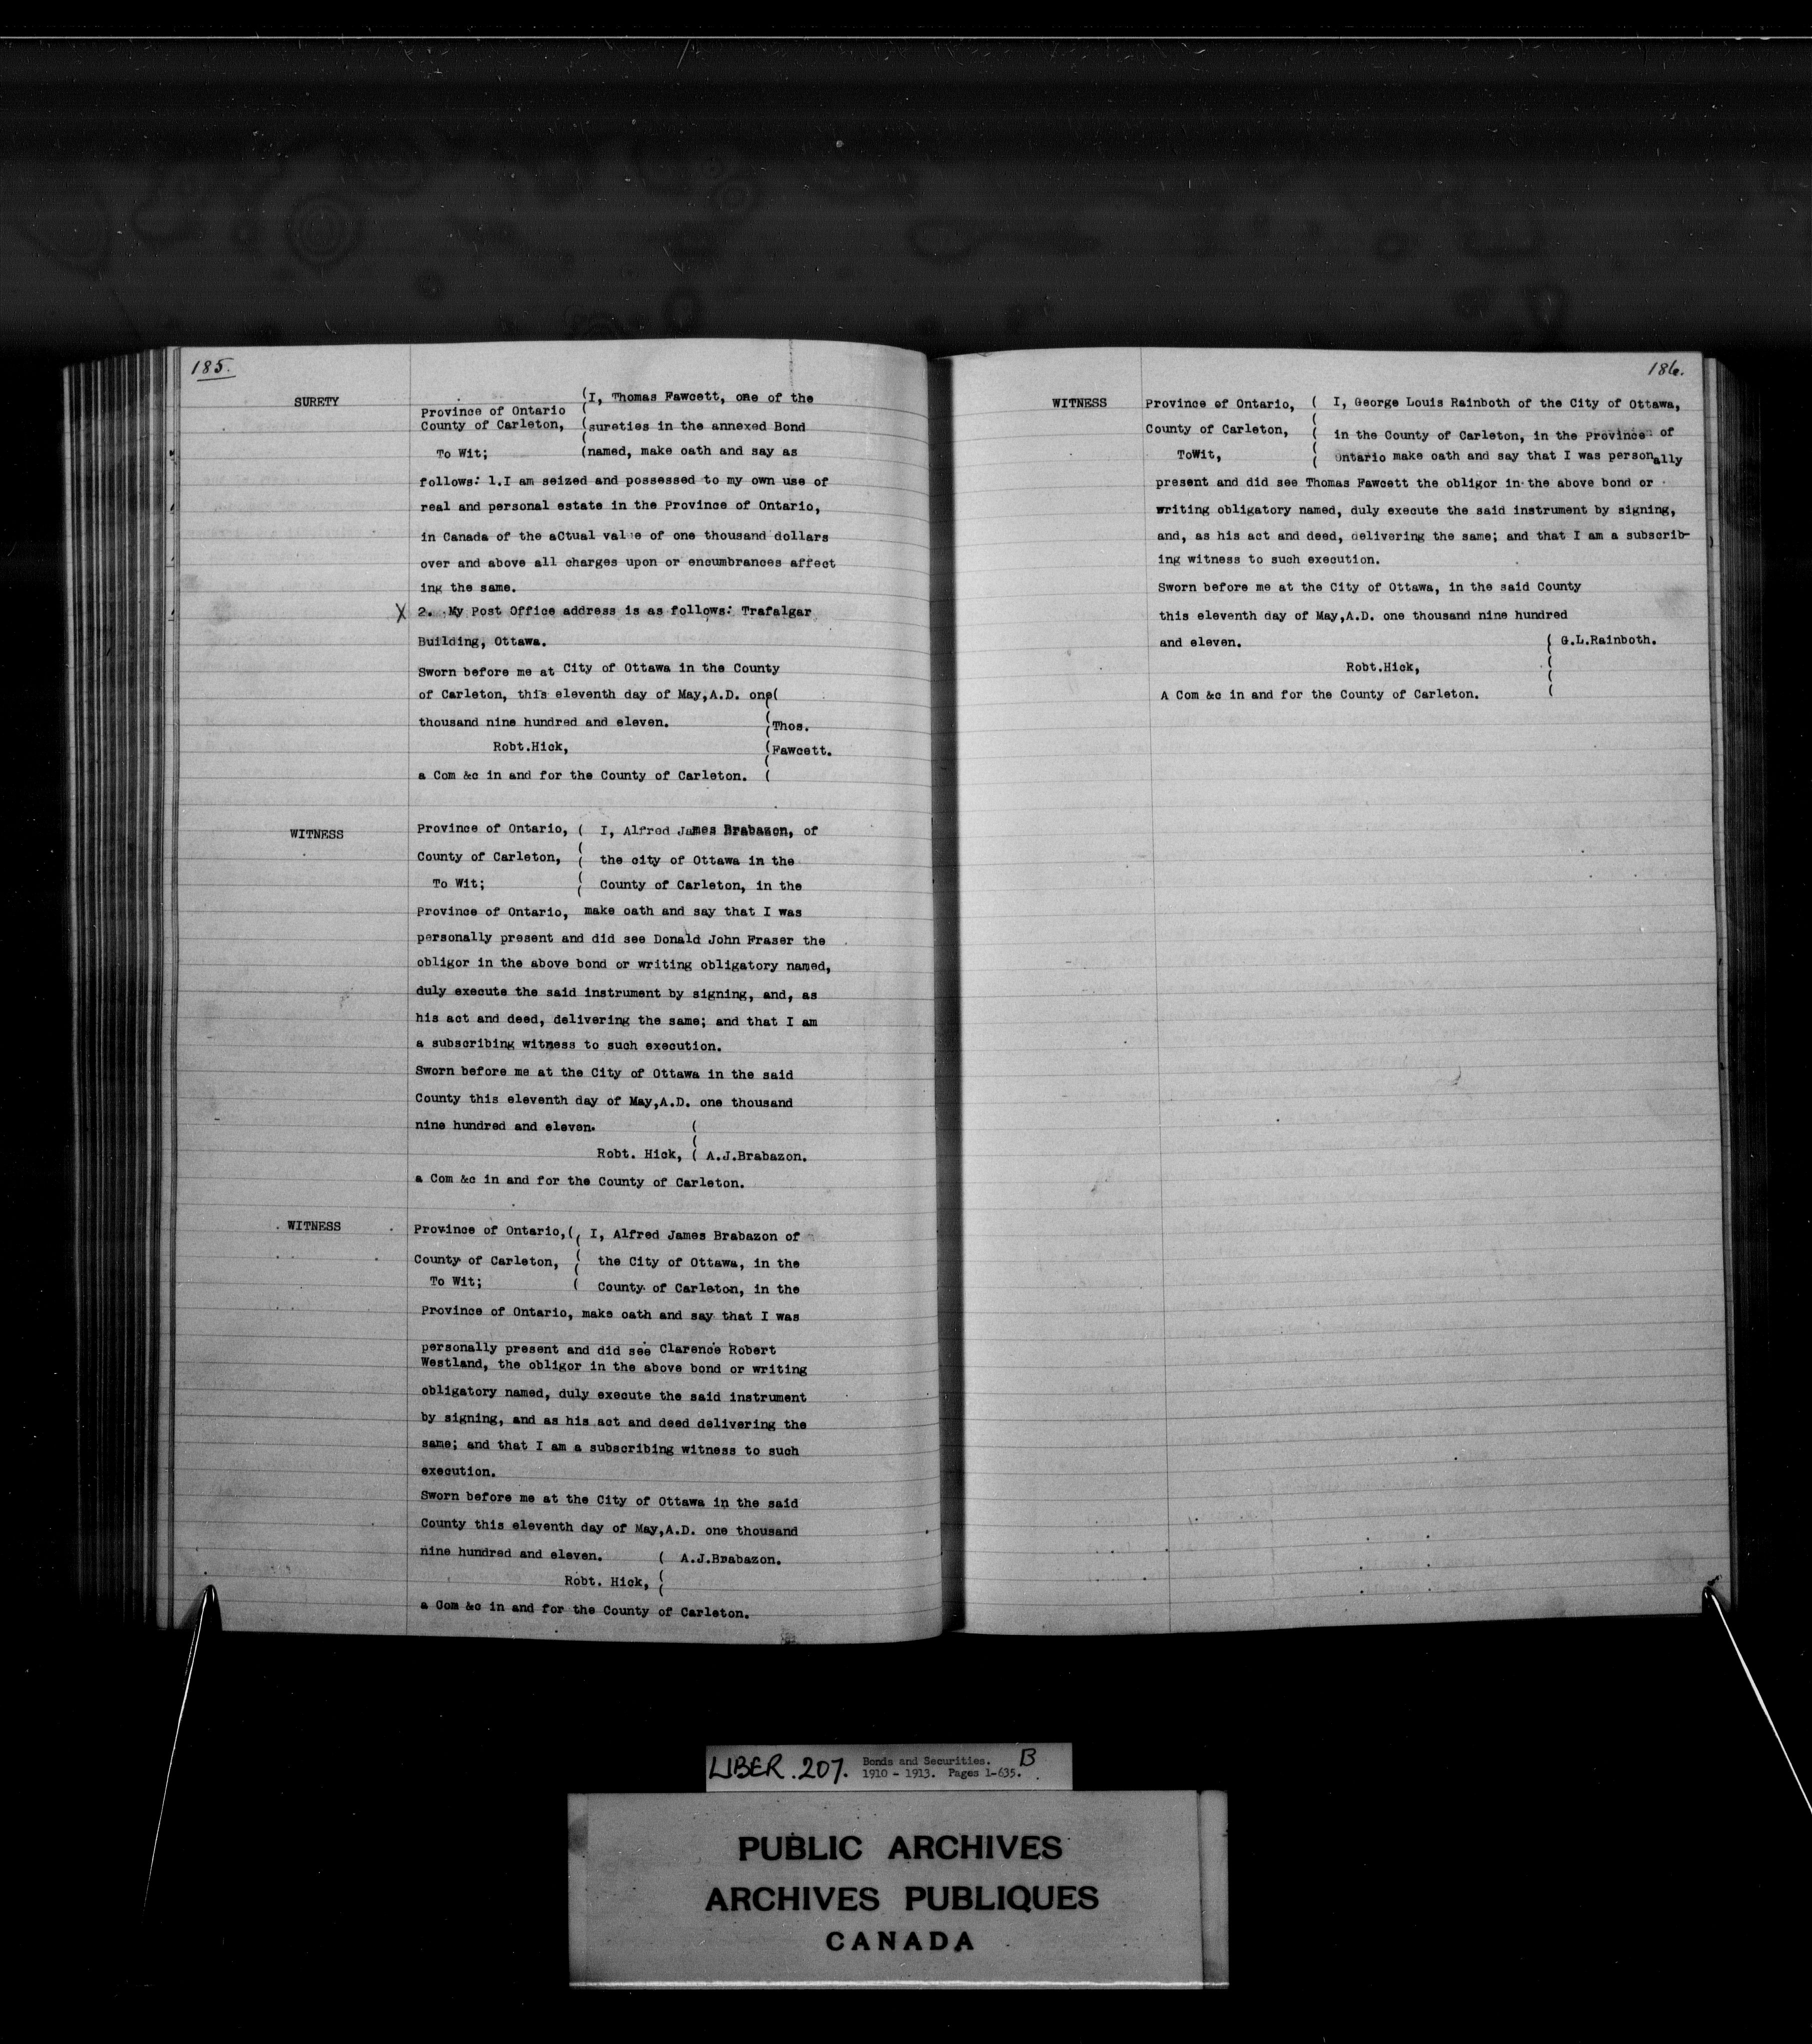 185.
SURETY
Province of Ontario
County of Carleton,
To Wit;
(I, Thomas Fawcett, one of the
(sureties in the annexed Bond
(named, make oath and say as
follows: 1.I am seized and possessed to my own use of
real and personal estate in the Province of Ontario,
in Canada of the aCtual value of one thousand dollars
over and above all charges upon or encumbrances affect
ing the same.
X 2. My Post Office address is as follows: Trafalgar
Building, Ottawa.
Sworn before me at City of Ottawa in the County
of Carleton, this eleventh day of May,A.D. one(
thousand nine hundred and eleven. (Thos.
Robt.Hick, (Fawcett.
a Com &c in and for the County of Carleton. (
WITNESS
Province of Ontario, ( I, Alfred James Brabazon, of
County of Carleton, ( the city of Ottawa in the
To Wit; ( County of Carleton, in the
Province of Ontario, make oath and say that I was
personally present and did see Donald John Fraser the
obligor in the above bond or writing obligatory named,
duly execute the said instrument by signing, and, as
his act and deed, delivering the same; and that I am
a subscribing witness to such execution.
Sworn before me at the City of Ottawa in the said
County this eleventh day of May,A.D. one thousand
nine hundred and eleven. (
Robt. Hick, ( A.J.Brabazon.
a Com &c in and for the County of Carleton.
WITNESS
Province of Ontario,( I, Alfred James Brabazon of
County of Carleton, ( the City of Ottawa, in the
To Wit; ( County of Carleton, in the
Province of Ontario, make oath and say that I was
personally present and did see Clarence Robert
Westland, the obligor in the above bond or writing
obligatory named, duly execute the said instrument
by signing, and as his act and deed delivering the
same; and that I am a subscribing witness to such
execution.
Sworn before me at the City of Ottawa in the said
County this eleventh day of May,A.D. one thousand
nine hundred and eleven. ( A.J.Brabazon.
Robt. Hick, (
a Com &c in and for the County of Carleton.
186.
WITNESS
Province of Ontario, ( I, George Louis Rainboth of the City of Ottawa,
County of Carleton, ( in the County of Carleton, in the Province of
ToWit, ( Ontario make oath and say that I was personally
present and did see Thomas Fawcett the obligor in the above bond or
writing obligatory named, duly execute the said instrument by signing,
and, as his act and deed, delivering the same; and that I am a subscrib-
ing witness to such execution.
Sworn before me at the City of Ottawa, in the said County
this eleventh day of May,A.D. one thousand nine hundred
and eleven. ( G.L.Rainboth.
Robt.Hick, (
A Com &c in and for the County of Carleton. (
LIBER. 207. Bonds and Securities. B
1910 - 1913. Pages 1-635.
PUBLIC ARCHIVES
ARCHIVES PUBLIQUES
CANADA